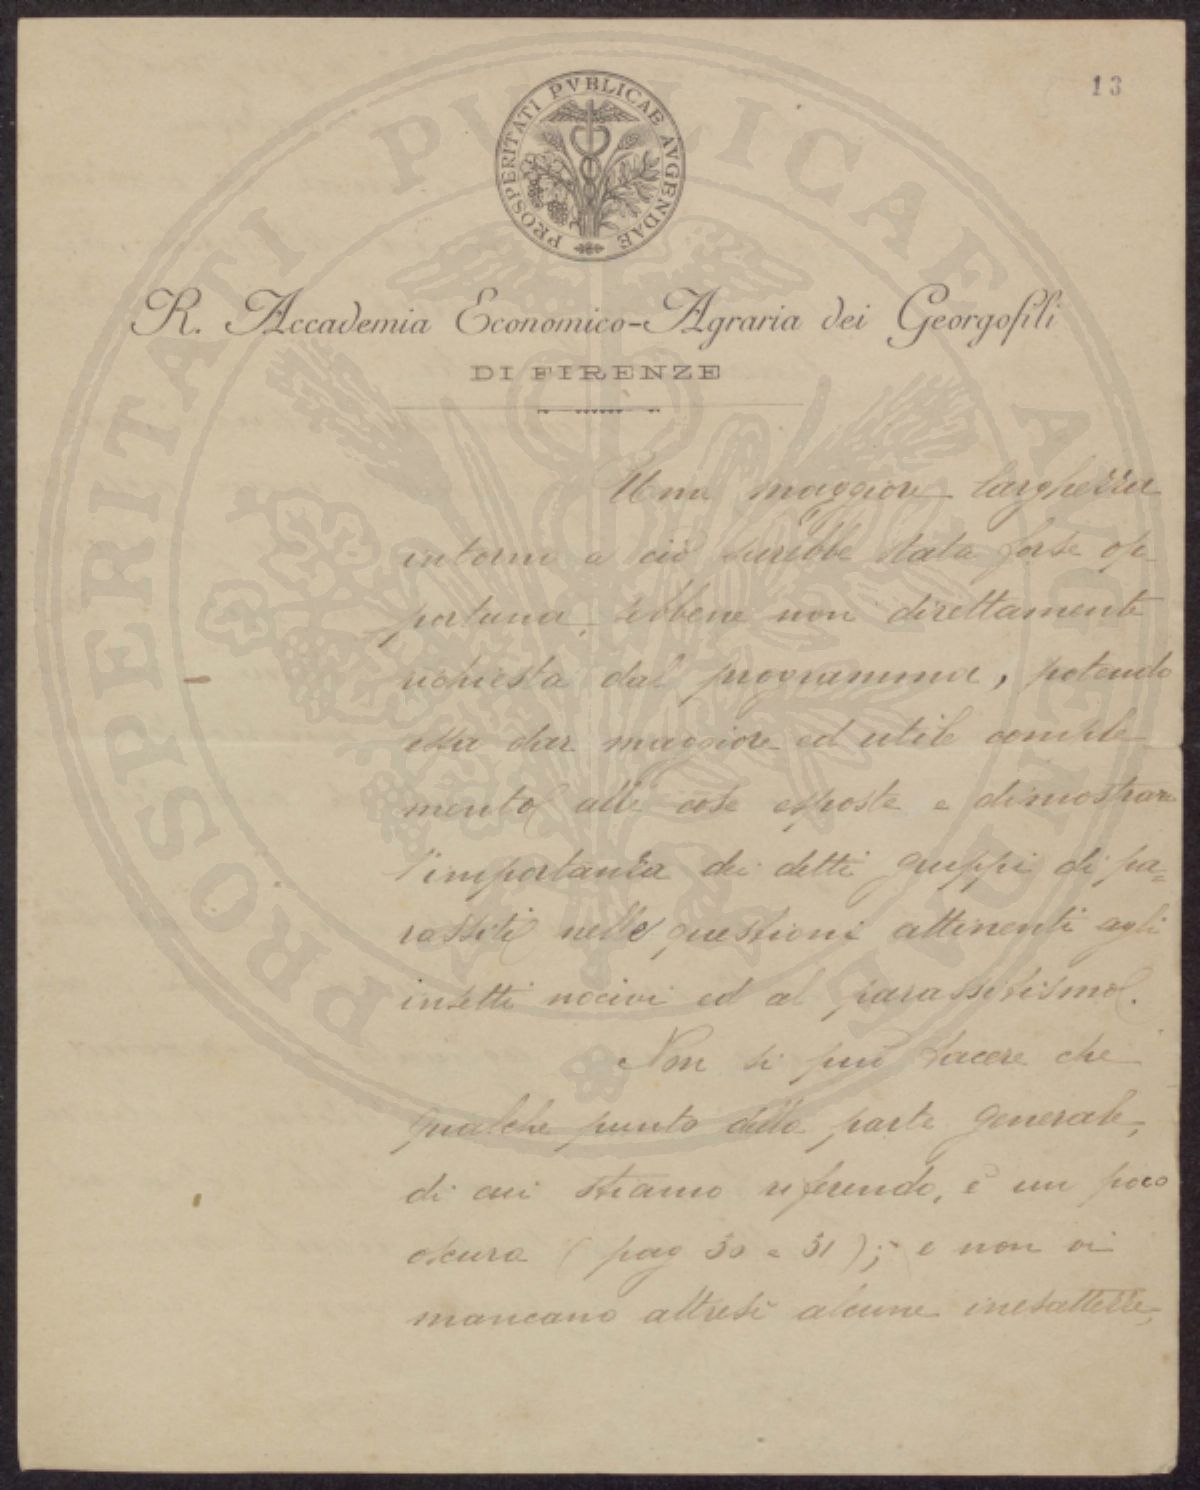 13
PROSPERITATI PVBLICAE AVGENDAE
R. Accademia Economico-Agraria dei Georgofili
DI FIRENZE
Una maggiore larghezza
intorno a ciò sarebbe stata forse op-
portuna, sebbene non direttamente
richiesta dal programma, potendo
essa dar maggiore ed utile comple
mento alle cose esposte e dimostrare
l'importanza dei detti gruppi di pa=
rassiti nelle questioni attinenti agli
insetti nocivi ed al parassitismo.
Non si può tacere che
qualche punto della parte generale,
di cui stiamo riferendo, è un poco
oscuro (pag 30 e 31); e non vi
mancano altresì alcune inesattezze,